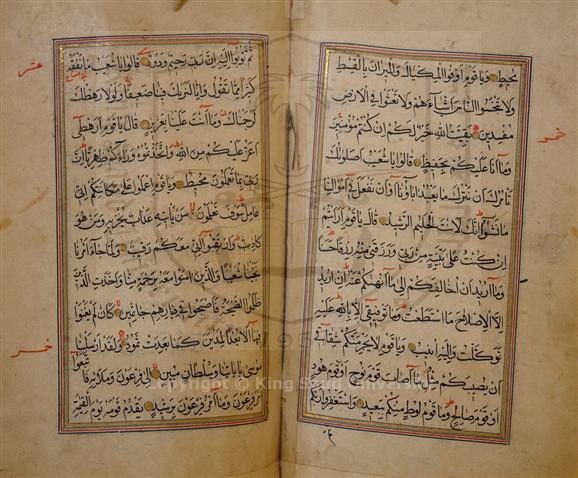 محيط وياقوم اوفوا المكيال والميزان بالقسط
ولا تبخسوا الناس اشياءهم ولا تعثوا في الارض
مفسدين بقيت الله خير لكم ان كنتم مؤمنين
خمر
وما انا عليكم بحفيظ قالوا ياشعيب اصلوتك
تامرك ان نترك ما يعبد اباؤنا او ان نفعل في اموالنا
ما نشؤا انك لانت الحليم الرشيد قال ياقوم ارايتم
ان كنت على بينة من ربي ورزقني منه رزقا حسنا
وما اريد ان اخالفكم الى ما انهيكم عنه ان اريد
الا الاصلاح ما استطعت وما توفيقي الا بالله عليه
توكلت واليه انيب وياقوم لا يجرمنكم شقاقي
ان يصيبكم مثل ما اصاب قوم نوح او قوم هود
او قوم صالح وما قوم لوط منكم ببعيد واستغفروا ربكم
ثم توبوا اليه ان ربي رحيم ودود قالوا ياشعيب ما نفقه
عشر
كثيرا مما تقول وانا لنريك فينا ضعيفا ولولا رهطك
لرجمناك وما انت علينا بعزيز قال ياقوم ارهطي
اعز عليكم من الله واتخذتموه وراءكم ظهريا ان
ربي بما تعملون محيط وياقوم اعملوا على مكانتكم اني
عامل سوف تعلمون من ياتيه عذاب يخزيه ومن هو
كاذب وارتقبوا اني معكم رقيب ولما جاء امرنا
نجينا شعيبا والذين امنوا معه برحمة منا واخذت الذين
ظلموا الصيحة فاصبحوا في ديارهم جاثمين كان لم يغنوا
فيها الا بعدا لمدين كما بعدت ثمود ولقد ارسلنا
خمر
موسى باياتنا وسلطان مبين الى فرعون وملائه فاتبعوا
امر فرعون وما امر فرعون برشيد يقدم قومه يوم القيمة
Copyright © King Saud University